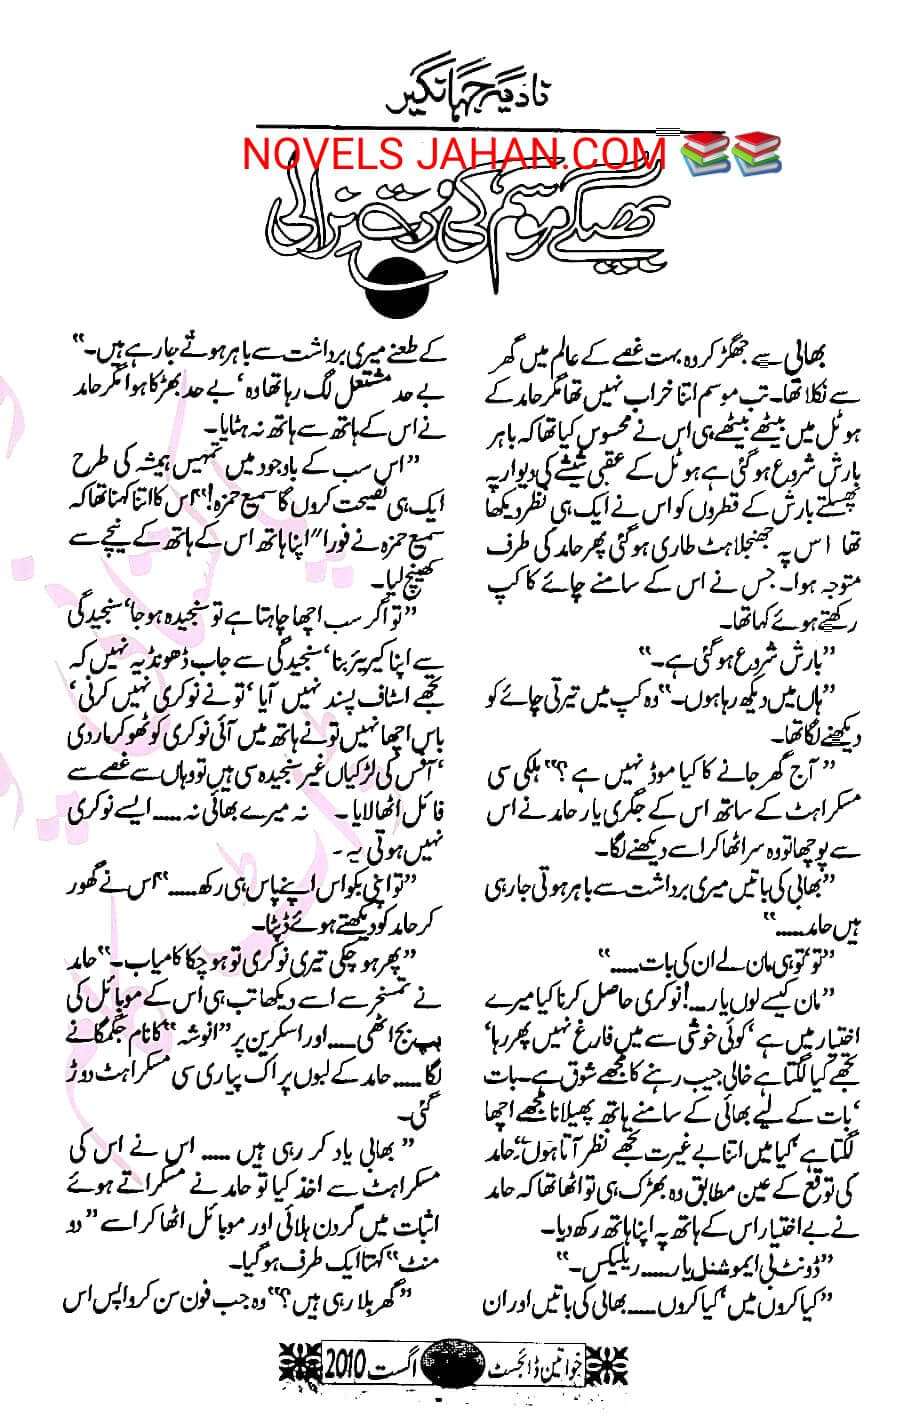 نادیہ جہانگیر
NOVELS JAHAN.COM
بھیگے موسم کی رت نرالی
بھائی سے جھگڑ کر وہ بہت غصے کے عالم میں گھر
سے نکلا تھا۔ تب موسم اتنا خراب نہیں تھا مگر حامد کے
ہوٹل میں بیٹھے بیٹھے ہی اس نے محسوس کیا تھا کہ باہر
بارش شروع ہو گئی ہے ہوٹل کے عقبی شیشے کی دیوار پہ
پھسلتے بارش کے قطروں کو اس نے ایک ہی نظر دیکھا
تھا اس پہ جھنجلاہٹ طاری ہو گئی پھر حامد کی طرف
متوجہ ہوا۔ جس نے اس کے سامنے چائے کا کپ
رکھتے ہوئے کہا تھا۔
”بارش شروع ہو گئی ہے۔“
”ہاں میں دیکھ رہا ہوں۔“ وہ کپ میں تیرتی چائے کو
دیکھنے لگا تھا۔
”آج گھر جانے کا کیا موڈ نہیں ہے؟“ ہلکی سی
مسکراہٹ کے ساتھ اس کے جگری یار حامد نے اس
سے پوچھا تو وہ سر اٹھا کر اسے دیکھنے لگا۔
”بھائی کی باتیں میری برداشت سے باہر ہوتی جا رہی
ہیں حامد.....“
”تو‘ تو ہی مان لے ان کی بات.....“
”مان کیسے لوں یار...! نوکری حاصل کرنا کیا میرے
اختیار میں ہے‘ کوئی خوشی سے میں فارغ نہیں پھر رہا‘
تجھے کیا لگتا ہے خالی جیب رہنے کا مجھے شوق ہے۔ بات
‘بات کے لیے بھائی کے سامنے ہاتھ پھیلانا مجھے اچھا
لگتا ہے‘ کیا میں اتنا بے غیرت تجھے نظر آتا ہوں“ حامد
کی توقع کے عین مطابق وہ بھڑک ہی تو اٹھا تھا کہ حامد
نے بے اختیار اس کے ہاتھ پہ اپنا ہاتھ رکھ دیا۔
”ڈونٹ بی ایموشنل یار..... ریلیکس۔“
”کیا کروں میں‘ کیا کروں..... بھائی کی باتیں اور ان
کے طعنے میری برداشت سے باہر ہوتے جا رہے ہیں۔“
بے حد مشتعل لگ رہا تھا وہ‘ بے حد بھڑکا ہوا مگر حامد
نے اس کے ہاتھ سے ہاتھ نہ ہٹایا۔
”اس سب کے باوجود میں تمہیں ہمیشہ کی طرح
ایک ہی نصیحت کروں گا سمیع حمزہ!“ اس کا اتنا کہنا تھا کہ
سمیع حمزہ نے فورا" اپنا ہاتھ اس کے ہاتھ کے نیچے سے
کھینچ لیا۔
”تو اگر سب اچھا چاہتا ہے تو سنجیدہ ہو جا‘ سنجیدگی
سے اپنا کیریئر بنا‘ سنجیدگی سے جاب ڈھونڈ یہ نہیں کہ
تجھے اسٹاف پسند نہیں آیا‘ تو نے نوکری نہیں کرنی‘
باس اچھا نہیں تو نے ہاتھ میں آئی نوکری کو ٹھوکر مار دی
‘آفس کی لڑکیاں غیر سنجیدہ سی ہیں تو وہاں سے غصے سے
فائل اٹھا لایا۔ نہ میرے بھائی نہ..... ایسے نوکری
نہیں ہوتی یہ۔
”تو اپنی بکواس اپنے پاس ہی رکھ.....“ اس نے گھور
کر حامد کو دیکھتے ہوئے ڈپٹا۔
”پھر ہو چکی تیری نوکری تو ہو چکا کامیاب۔“ حامد
نے تمسخر سے اسے دیکھا تب ہی اس کے موبائل کی
بیپ بج اٹھی..... اور اسکرین پر ”انوشہ“ کا نام جگمگانے
لگا..... حامد کے لبوں پر اک پیاری سی مسکراہٹ دوڑ
گئی۔
”بھابی یاد کر رہی ہیں..... اس نے اس کی
مسکراہٹ سے اخذ کیا تو حامد نے مسکراتے ہوئے
اثبات میں گردن ہلائی اور موبائل اٹھا کر اسے ”دو
منٹ“ کہتا ایک طرف ہو گیا۔
”گھر بلا رہی ہیں؟“ وہ جب فون سن کر واپس اس
خواتین ڈائجسٹ
اگست 2010